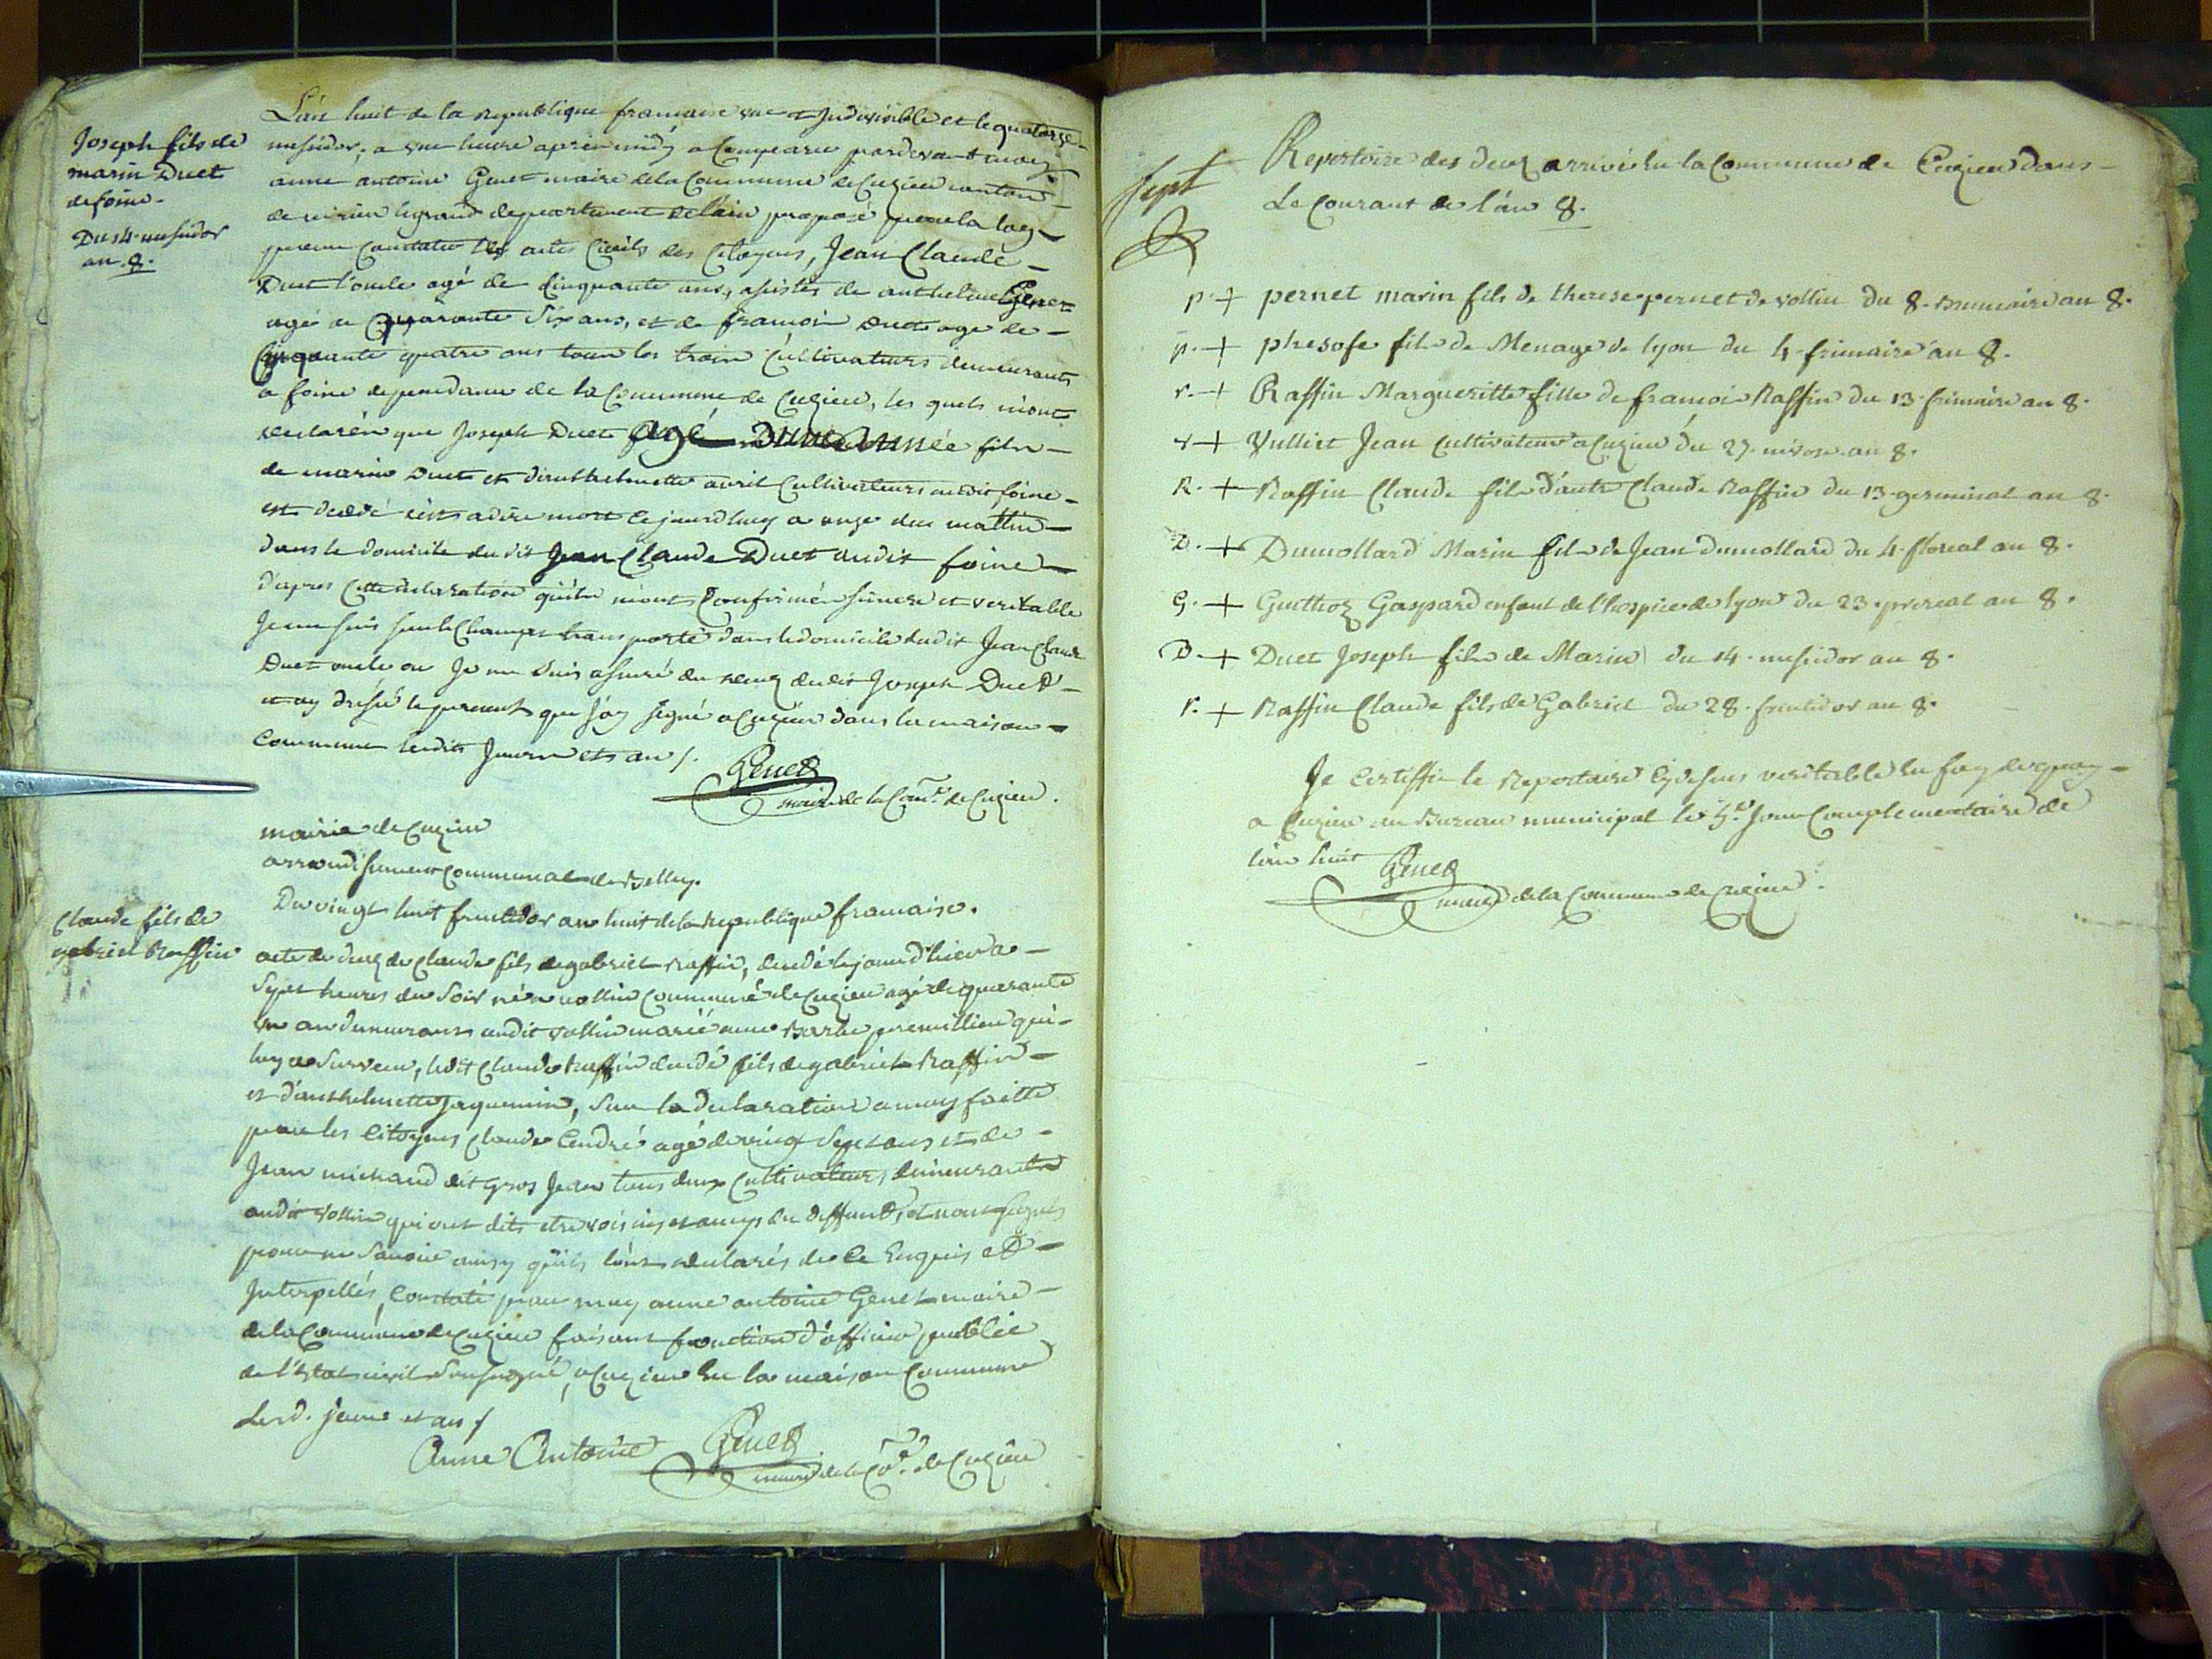 Joseph fils de
marin Duet
de foine.
Du 14 messidor
an 8.
L'an huit de la republique francaise une et Indivisible et le quatorze
messidor, a une heure apres midy a Comparu pardevant moy
anne antoine Genet maire de la Commune de Cuzieu canton
de virieu legrand departement de l'ain proposé par la loy
pour Constater les actes Civils des Citoyens, Jean Claude
Duet l'oncle agé de Cinquante ans, assistés de anthelme Genet
agé de quarante Six ans, et de francois Duet agé de
Cinquante quatre ans tous les trois Cultivateurs demeurants
a foine dependance de la Commune de Cuzieu, les quels m'ont
declarés que Joseph Duet agé D'une année fils
de marin Duet et d'anthelmette avril Cultivateurs audit foine
est decedé c'est a dire mort cejourd'huy a onze du mattin
dans le domicile du dit Jean Claude Duet audit foine
d'apres Cette declaration qu'ils m'ont Confirmés sincere et veritable
Je me suis sur le Champ transporté dans le domicile dudit Jean Claude
Duet oncle ou Je me suis assuré du deces dudit Joseph Duet
et ay dressé le present que J'ay signé a Cuzieu dans la maison
Commune lesdits Jours et an /.
Genet
maire de la Com.ne de Cuzieu.
mairie de Cuzieu
arrondissement Communal de Belley.
Claude fils de
gabriel Raffin
Du vingt huit fructidor an huit de la Republique francaise.
acte de deces de Claude fils de gabriel Raffin, decedé le jour d'hier a
Sept heures du Soir né a vollin Commune de Cuzieu agé de quarante
un an demeurant audit vollin marié avec Barbe premillieu qui
luy a Survecu, ledit Claude Raffin decedé fils de gabriel Raffin
et d'anthelmette Jaquemin, Sur la declaration a moy faitte
par les Citoyens Claude Cendré agé de vingt Sept ans et de
Jean michaud dit gros Jean tous deux Cultivateurs demeurants
audit vollin qui ont dits etre voisins et amys du deffunt, et non signés
pour ne Savoir ainsy qu'ils l'ont declarés de ce Enquis et
Interpellés, Constaté par moy anne antoine Genet maire
de la Commune de Cuzieu faisant fonction d'officier publie
de l'Etat civil Soussigné, a Cuzieu En la maison Commune
Lesd. jours et an /
Anne Antoine Genet
maire de la Co.ne de Cuzieu
sept
Repertoire des deces arrivé En la Commune de Cuzieu dans
Le Courant de l'an 8.
p. + pernet marin fils de therese pernet de vollin du 8. Brumaire an 8.
p. + phesofe fils de Menage de lyon du 4 frimaire an 8.
r. + Raffin Margueritte fille de francois Raffin du 13 frimaire an 8.
v + Vulliet Jean Cultivateur a Cuzieu du 27. nivose an 8.
R. + Raffin Claude fils d'autre Claude Raffin du 13 germinal an 8.
D. + Dumollard Marin fils de Jean dumollard du 4 floreal an 8.
G. + Guilloz Gaspard enfant de l'hospice de lyon du 23. prereal an 8.
D. + Duet Joseph fils de Marin du 14. messidor an 8.
r. + Raffin Claude fils de Gabriel du 28. fructidor an 8.
Je Certiffie le Repertoire Cydessus veritable En foy de quoy
a Cuzieu au Bureau municipal le 5.e Jour Complementaire de
l'an huit Genet
maire de la Commune de Cuzieu.